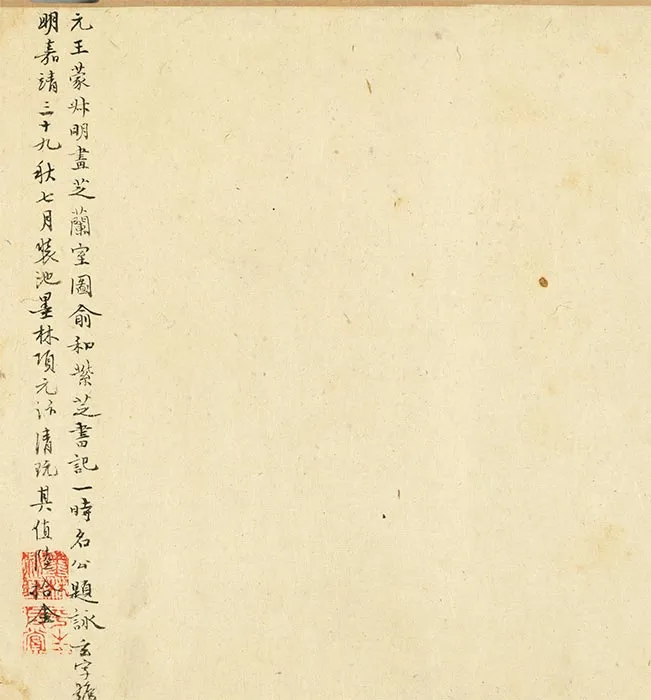 元王蒙叔明畫芝蘭室圖俞和紫芝書記一時名公題詠玄字號
明嘉靖三十九秋七月裝池墨林項元汴清玩其值陸拾金